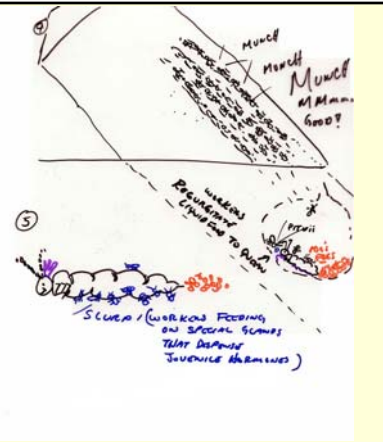 4
MUNCH
MUNCH
MUNCH
MMmm
GOOD!
WORKERS
REGURGITATE
LIQUID FOOD TO QUEEN
5
SLURP! (WORKERS FEEDING
ON SPECIAL GLANDS
THAT DISPENSE
JUVENILE HORMONES)